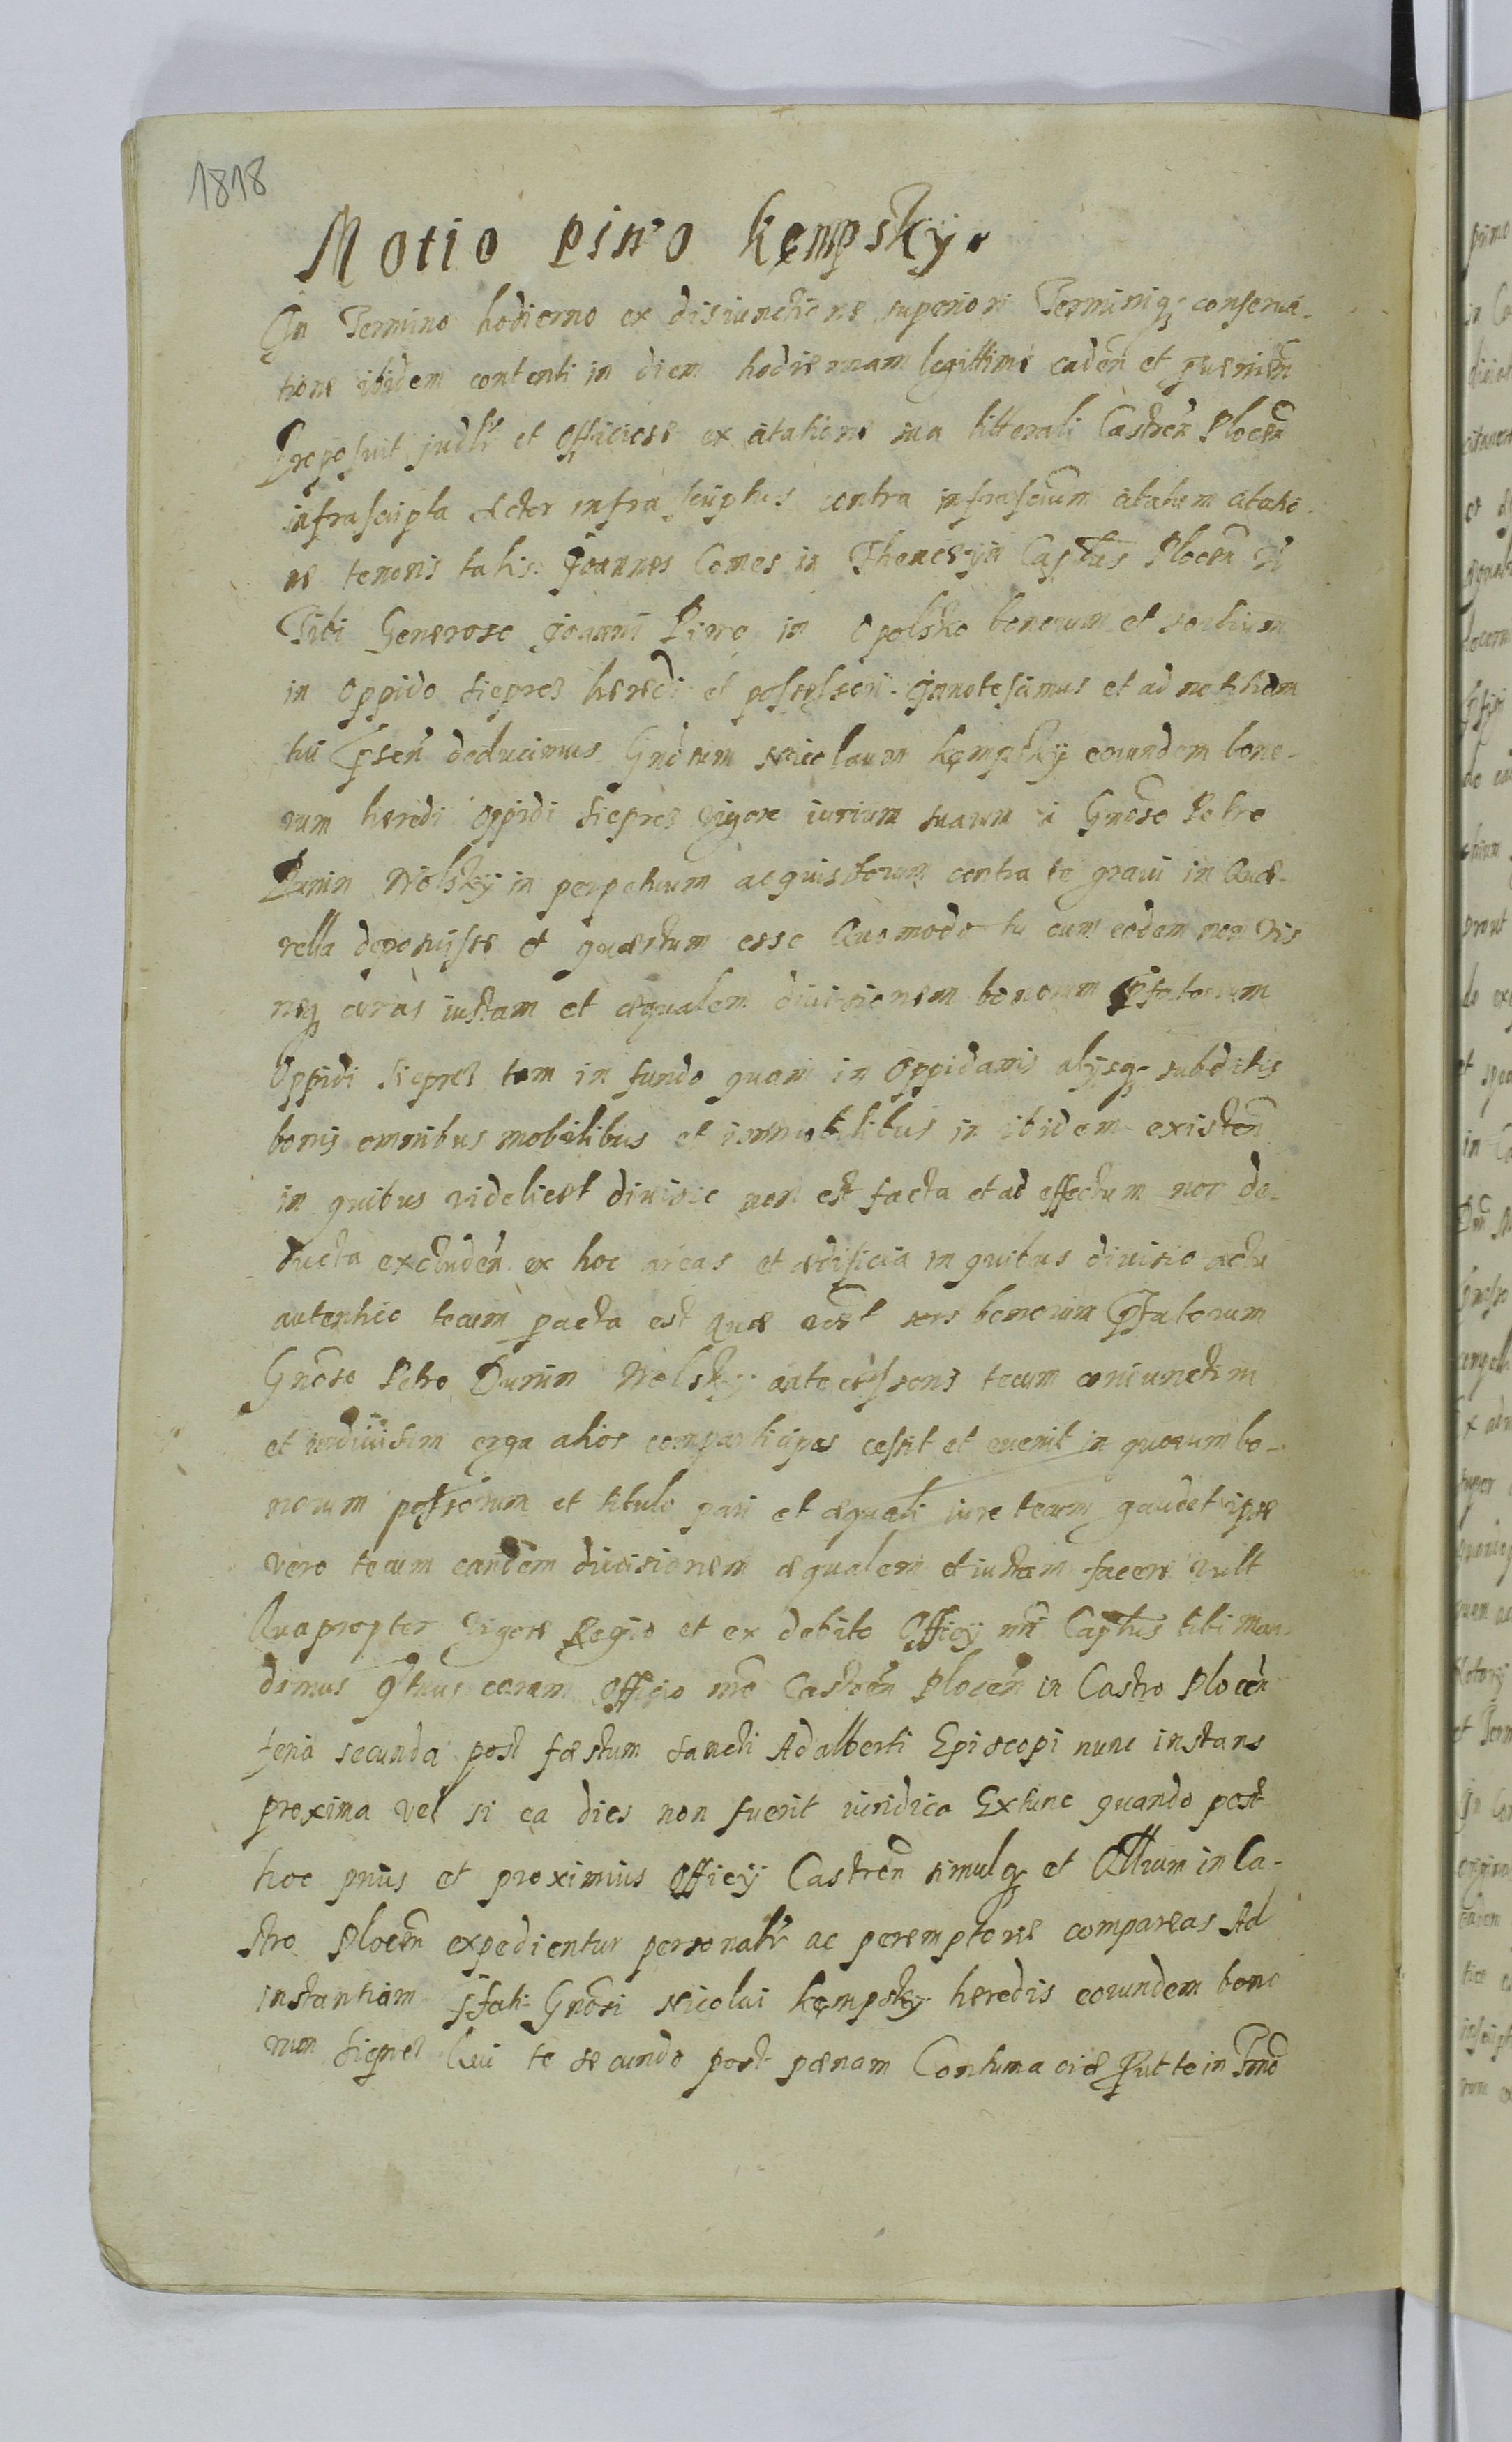 1818
Motio Pirro Kęmpsky.
In Termino hodierno ex disiunctione superiori Terminiq; conserva-
tione ibidem contenti in diem hodiernam legittime caden̄ et
Proposuit judlr̄ et Officiose ex citatione sua litterali Castren̄ Plocen̄
infrascripta Actor infrascriptus contra infrascrtum citatum citatio
ne tenoris talis. Joannes Comes in Thenczyn Captūs Plocen̄
Tibi Generoso Joanni Pirro in Opolsko bonorum et sortium
in Oppido Sieprcz heredi et possessori. Innotescimus et ad notitiam
tui p̄sen̄ deducimus Gnōsum Nicolaum Kęmpsky eorundem bono-
rum heredi oppidi Sieprcz vigore iurium suarum a Gnōso Petro
Dunin Wolsky in perpetuum acquisitorum contra te gravi in Quæ-
rella deposuisse et quæstum esse Quomodo tu cum eodem non vis
neq; curas iustam et æqualem divisionem bonorum p̄fatorum
Oppidi Sieprcz tam in fundo quam in Oppidanis alijsq; subditis
bonis omnibus mobilibus et immobilibus in ibidem existen̄
in quibus videlicet divisio non est facta et ad effectum non de-
ducta excluden̄ ex hoc areas et ædificia in quibus divisio actu
autenthico tecum pacta est Quæ sors bonorum p̄fatorum
Gnōso Petro Dunin Wolsky antecessori tecum coniunctim
et indivisim erga alios comparticipes cessit et evenit in quorum bo-
norum et titulo pari et æquali iure tecum gaudet ipse
vero tecum eandem divisionem æqualem et iustam facere vult
Quapropter vigore Regio et ex debito Officij nrī Captūs tibi man-
damus qtenus coram Officio nrō Castren̄ Plocen̄ in Castro Plocen̄
feria secunda post fæstum Sancti Adalberti Episcopi nunc instans
proxima vel si ea dies non fuerit iuridica Extunc quando post
hoc prius et proximius Officij Castren̄ simulq; et Actium in Ca-
stro Plocen̄ expedientur personalr̄ ac peremptorie compareas Ad
instantiam p̄fati Gnōsi Nicolai Kęmpsky heredis eorundem bono
rum Sieprcz Qui te secundo post pænam Contumaciæ te in